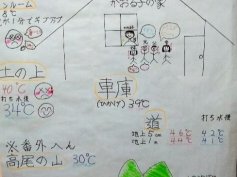 ンルーム
8℃
かおる子の家
土の上
40℃
打ち水後
34℃
車庫
(ひかげ) 39℃
道
打ち水後
地上5cm 46℃ 42℃
地上1m 44℃ 41℃
※番外へん
高尾の山 30℃